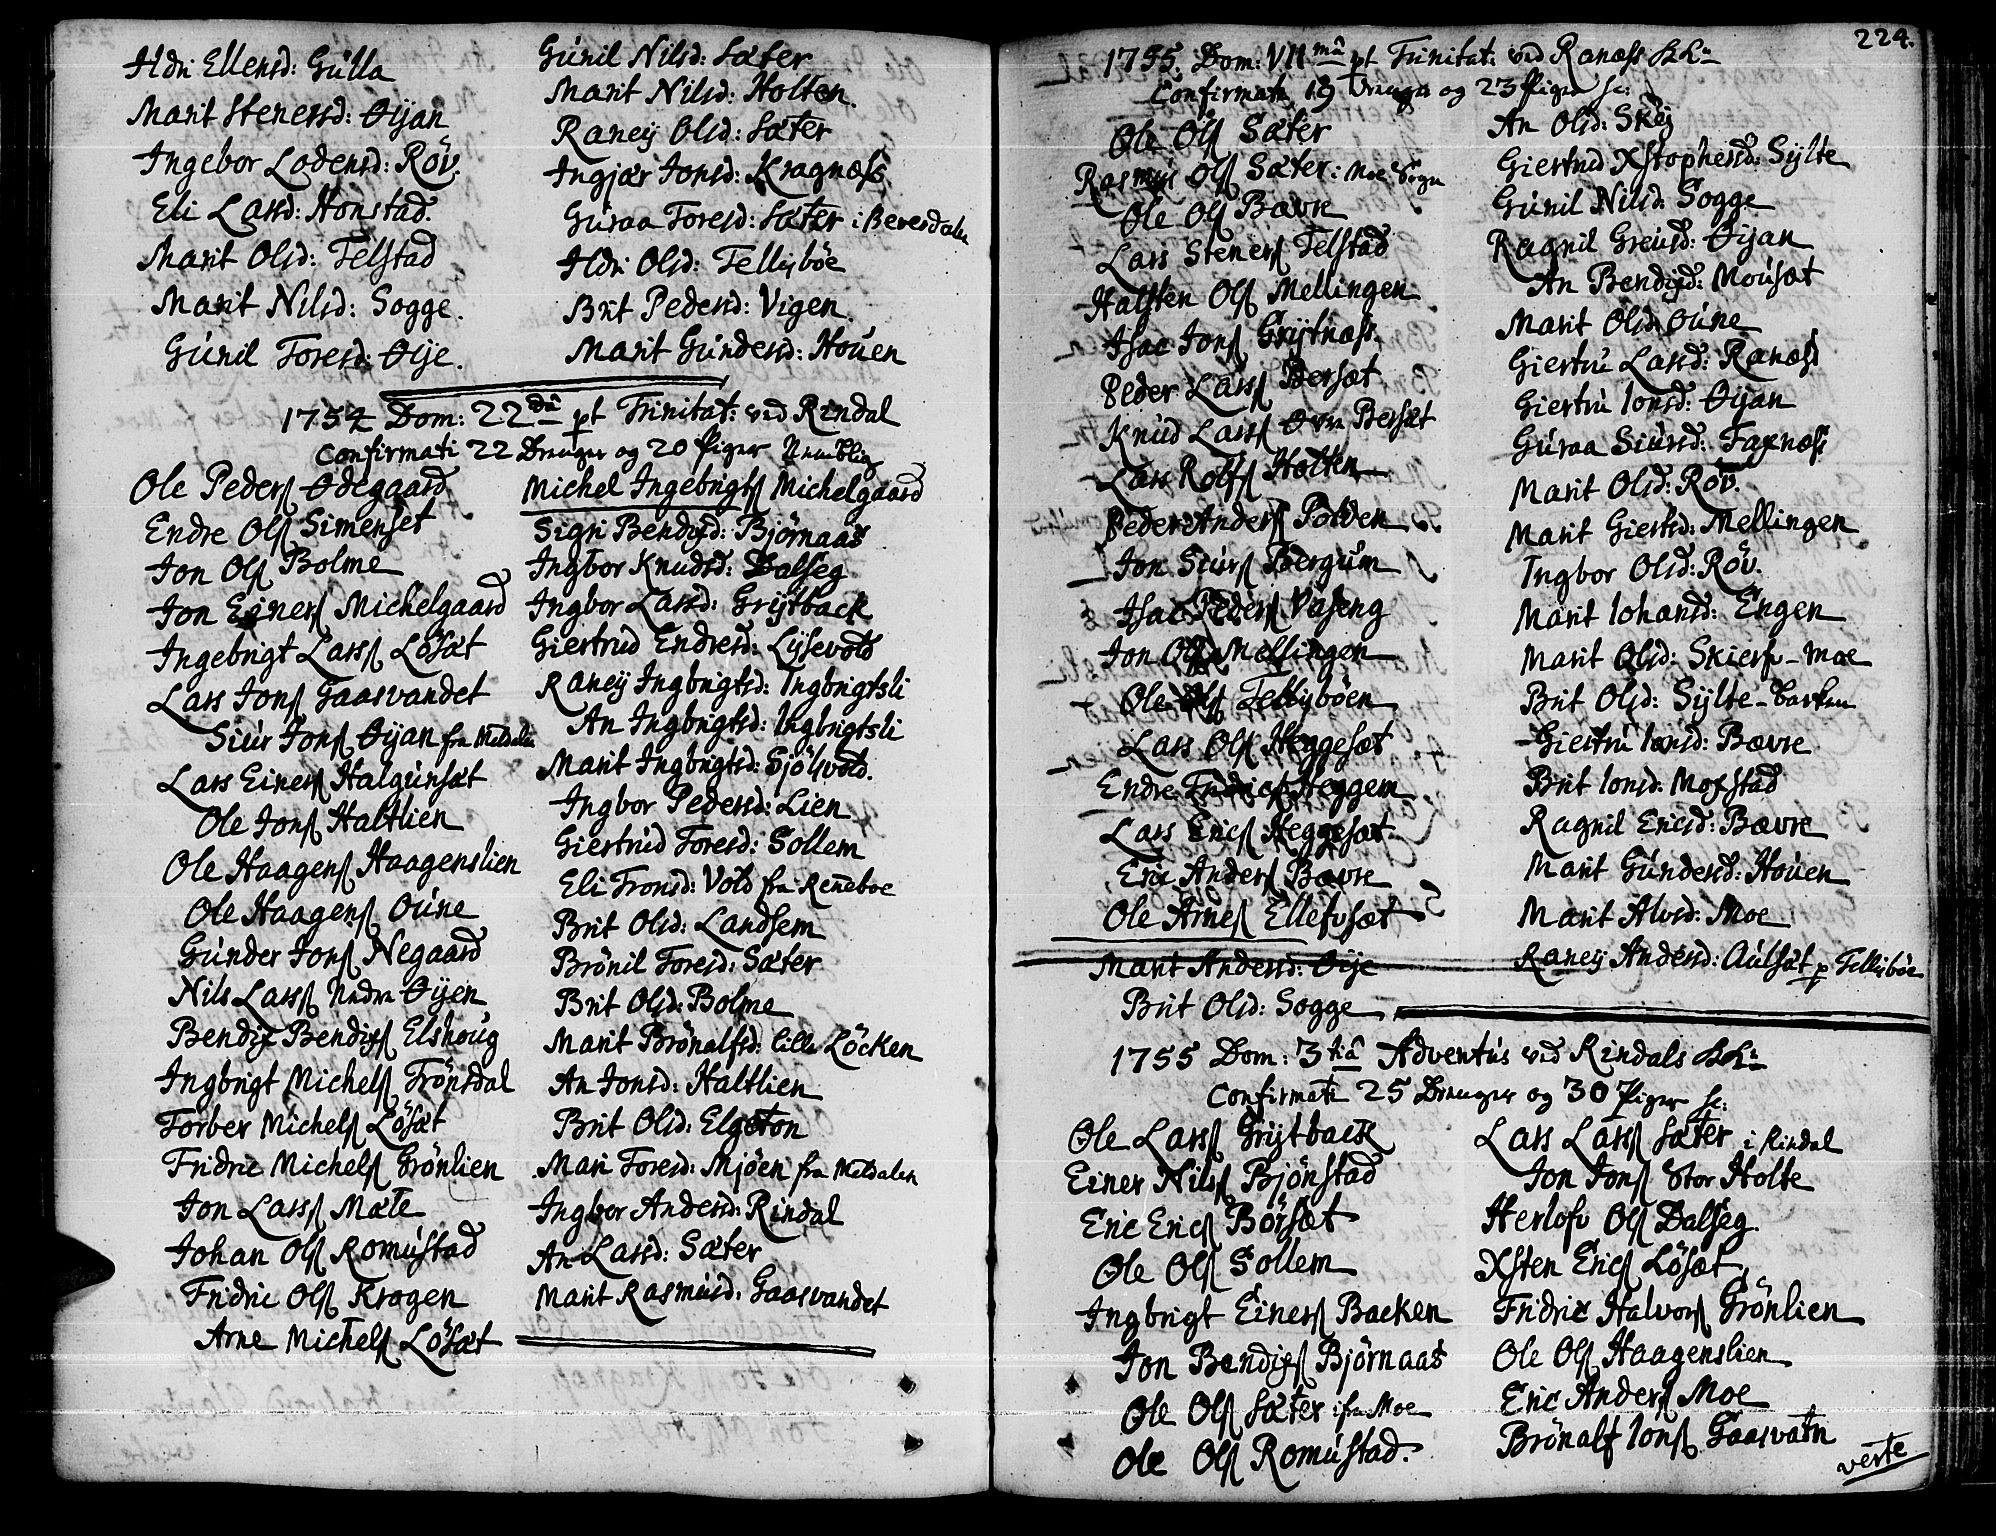 Ildri Ellensd: Gúlla
Marit Stenersd: Øijan
Ingebor Lodensd: Röv.
Eli Larsd: Honstad.
Marit Olsd: Telstad
Marit Nilsd: Sogge.
Gúnil Toresd: Øije.
Gúnil Nilsd: Sæter
Marit Nilsd: Holten.
Raneij Olsd: Sæter
Ingjær Jonsd: Kragnæss
Gúraa Toresd: Sæter i Beversdalen
Ildri Olsd: Tellisböe
Brit Pedersd: Vigen.
Marit Gúndersd: Hoúen
1754 Dom: 22dâ pt Trinitat: ved Rindal
Confirmati 22 Drenger og 20 Piger Nembling
Ole Peders Ødegaard
Endre Ols Simenset
Jon Ols Bolme
Jon Einers Michelgaard
Ingebrigt Larss Lösæt
Lars Jons Gaasvandet
Siúr Jons Øijan fra Meldalen
Lars Einers Halgúnsæt
Ole Jons Haltlien
Ole Haagens Haagenslien
Ole Haagens Oúne
Gúnder Jons Negaard
Nils Larss Nedre Øijen
Bendix Bendixs Elshoúg
Ingbrigt Michels Trönsdal
Torber Michels Lösæt
Fridric Michels Grönlien
Jon Larss Mæle
Johan Ols Romúndstad
Fridric Ols Krogen
Arne Michels Lösæt
Michel Ingebrigts Michelgaard
Sigri Bendixd: Björnaas
Ingbor Knudsd: Dalseg
Ingbor Larsd: Grijtback
Giertrud Endresd: Lijsevold
Raneij Ingbrigtsd: Ingbrigtsli
An Ingbrigtsd: Ingbrigtsli
Marit Ingbrigtsd: Sjölsvold.
Ingbor Pedersd: Lien
Giertrúd Toresd: Sollem
Eli Tronsd: Vold fra Renneboe
Brit Olsd: Landsem
Brönil Toresd: Sæter
Brit Olsd: Bolme
Marit Brönalfsd: lille Löcken
An Jonsd: Haltlien
Brit Olsd: Elgeton
Mari Toresd: Mjöen fra Meldalen
Ingbor Andersd: Rindal
An Larsd: Sæter
Marit Rasmusd: Gaasvandet
224.
1755 Dom: VIImâ pt Trinitat: ved Ranæss KK
Confirmati 19 Drenger og 23 Piger sc:
Ole Ols Sæter
Rasmus Ols Sæter: Moe Sogn
Ole Ols Bævre
Lars Steners Telstad
Halsten Ols Mellingen
Isac Jons Grijtnæss.
Peder Larss Bersæt
Knúd Larss Øvre Bersæt
Lars Rolfs Holten
Peder Anders Polden
Jon Siúrs Bergúm
Isac Peders Vaseng
Jon Ols Mellingen
Ole Ols Tellisböen
Lars Ols Heggesæt
Endre Fridrics Heggem
Lars Erics Heggesæt
Eric Anders Bævre
Ole Arnes Ellefsæt
Marit Andersd: Øije
Brit Olsd: Sogge
An Olsd: Skej
Giertrud Xstophersd: Sijlte
Gúnil Nilsd: Sogge
Ragnil Greiúsd: Øijan
An Bendixd: Moúsæt
Marit Olsd: Oúne
Giertrú Larsd: Ranæss
Giertrú Ionsd: Øijan
Gúraa Siúrsd: Taxnæss
Marit Olsd: Röv.
Marit Giertsd: Mellingen
Ingbor Olsd: Röv.
Marit Iohansd: Engen
Marit Olsd: Skierf-moe
Brit Olsd: Sijlte-backen
Giertrú Ionsd: Bævre
Brit Ionsd: Moxstad
Ragnil Ericsd: Bævre
Marit Gúndersd: Hoúen
Marit Alvsd: Moe
Raneij Andersd: Aúlsæt p Tellisböe
1755 Dom: 3tiâ Adventús ved Rindals KK
Confirmati 25 Drenger og 30 Piger sc:
Ole Larss Grijtback
Einer Nilss Bjönstad
Eric Erics Börsæt
Ole Ols Sollem
Ingbrigt Einers Backen
Jon Bendixs Björnaas
Ole Ols Sæter ifra Moe
Ole Ols Romúndstad.
Lars Larss Sæter i Rindal
Jon Jons Stor Holte
Herlofv Ols Dalseg.
Xsten Erics Lösæt
Fridric Halvors Grönlien
Ole Ols Haagenslien
Eric Anders Moe
Brönalf Ions Gaasvatn
verte